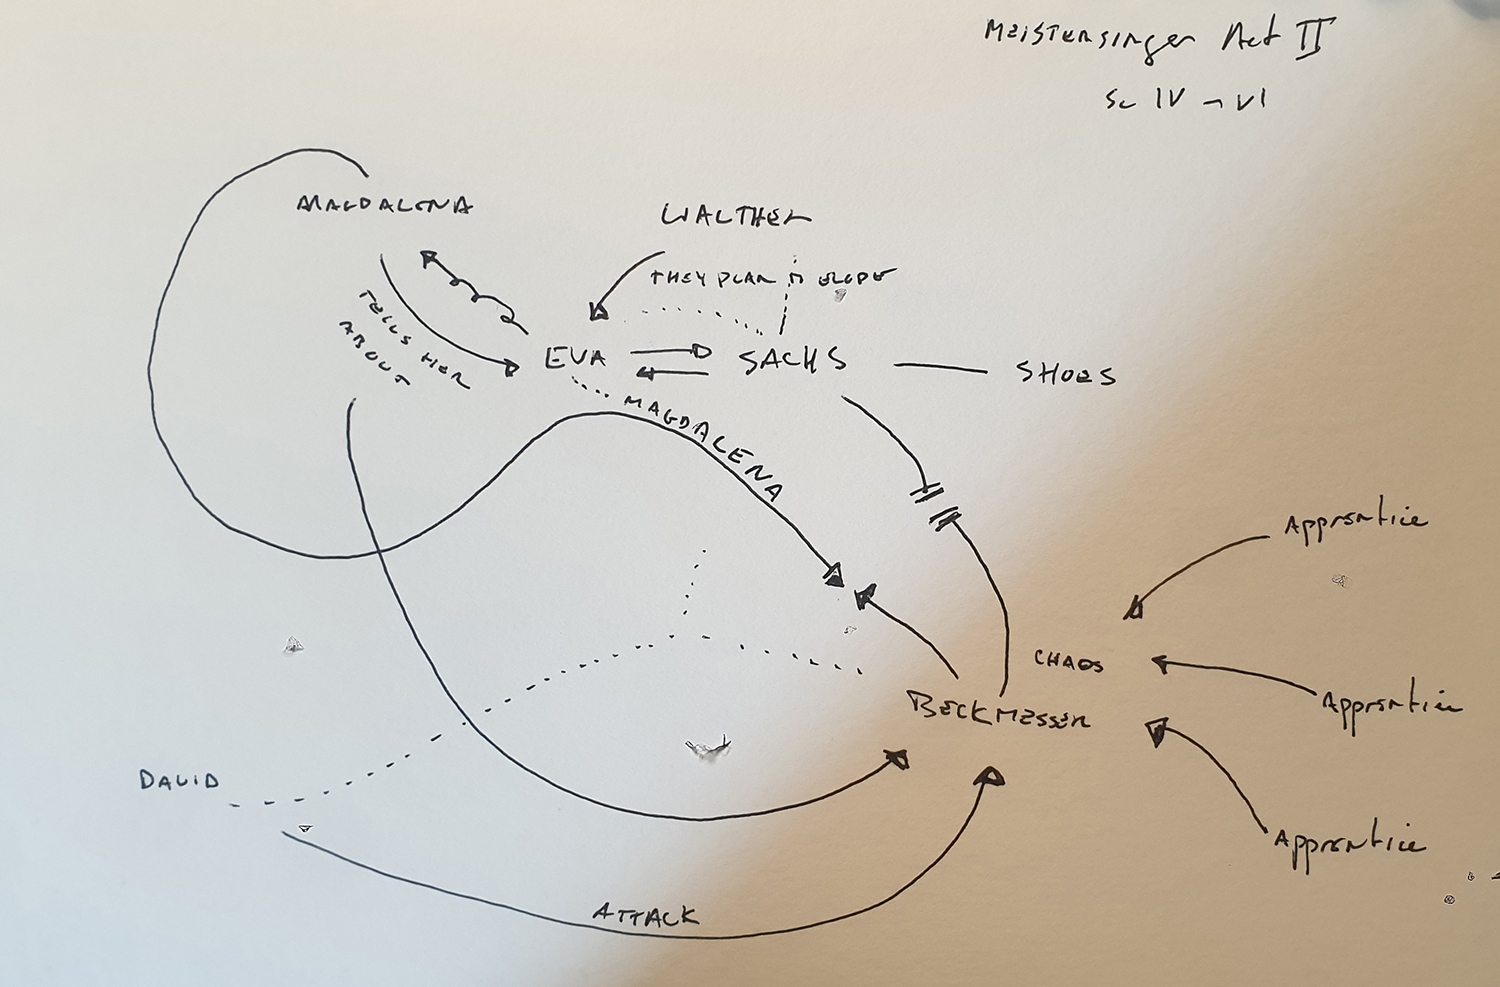 Meistersinger Act II
Sc IV - VI
MAGDALENA
WALTHER
THEY PLAN TO ELOPE
TELLS HER
ABOUT
EVA
SACHS
SHOES
MAGDALENA
Apprentice
CHAOS
BECKMESSER
Apprentice
DAVID
Apprentice
ATTACK